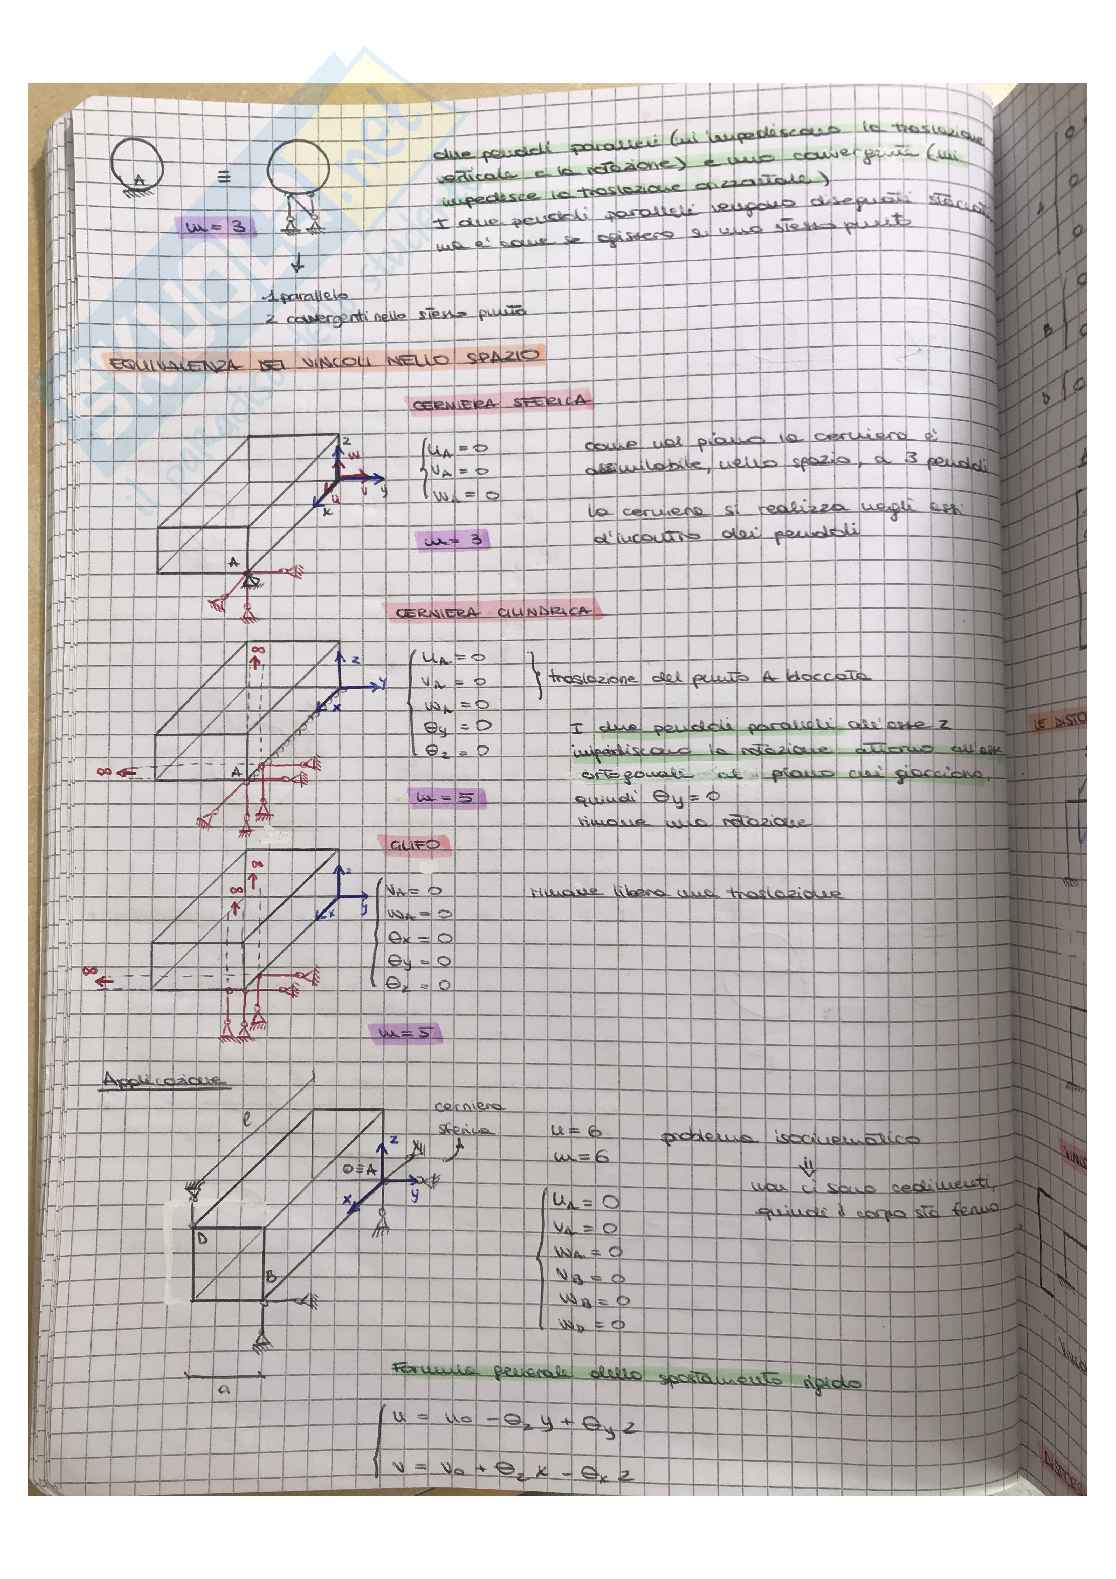 due pendoli paralleli (mi impediscono la traslazione
verticale e la rotazione) e uno convergente (mi
impedisce la traslazione orizzontale)
I due pendoli paralleli vengono disegnati staccati
ma è come se agissero su uno stesso punto
A
≡
m = 3
1 parallelo
2 convergenti nello stesso punto
EQUIVALENZA DEI VINCOLI NELLO SPAZIO
CERNIERA SFERICA
z
w
v
y
u
x
A
uA = 0
vA = 0
wA = 0
m = 3
come nel piano la cerniera è
assimilabile, nello spazio, a 3 pendoli
la cerniera si realizza negli assi
d'incontro dei pendoli
CERNIERA CILINDRICA
∞
z
y
x
∞
A
uA = 0
vA = 0
wA = 0
θy = 0
θz = 0
m = 5
traslazione del punto A bloccata
I due pendoli paralleli all'asse z
impediscono la rotazione attorno all'asse
ortogonali al piano cui giacciono,
quindi θy = 0
rimane una rotazione
GLIFO
∞
∞
z
y
x
∞
vA = 0
wA = 0
θx = 0
θy = 0
θz = 0
m = 5
rimane libera una traslazione
Applicazione
l
cerniera
sferica
z
O≡A
y
x
D
B
a
u = 6
m = 6
problema isocinematico
⇓
non ci sono cedimenti,
quindi il corpo sta fermo
uA = 0
vA = 0
wA = 0
vB = 0
wB = 0
wD = 0
Formula generale dello spostamento rigido
u = u0 - θz y + θy z
v = v0 + θz x - θx z